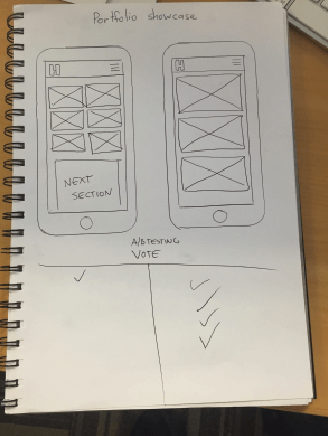 Portfolio showcase
H
H
NEXT
SECTION
A/B TESTING
VOTE